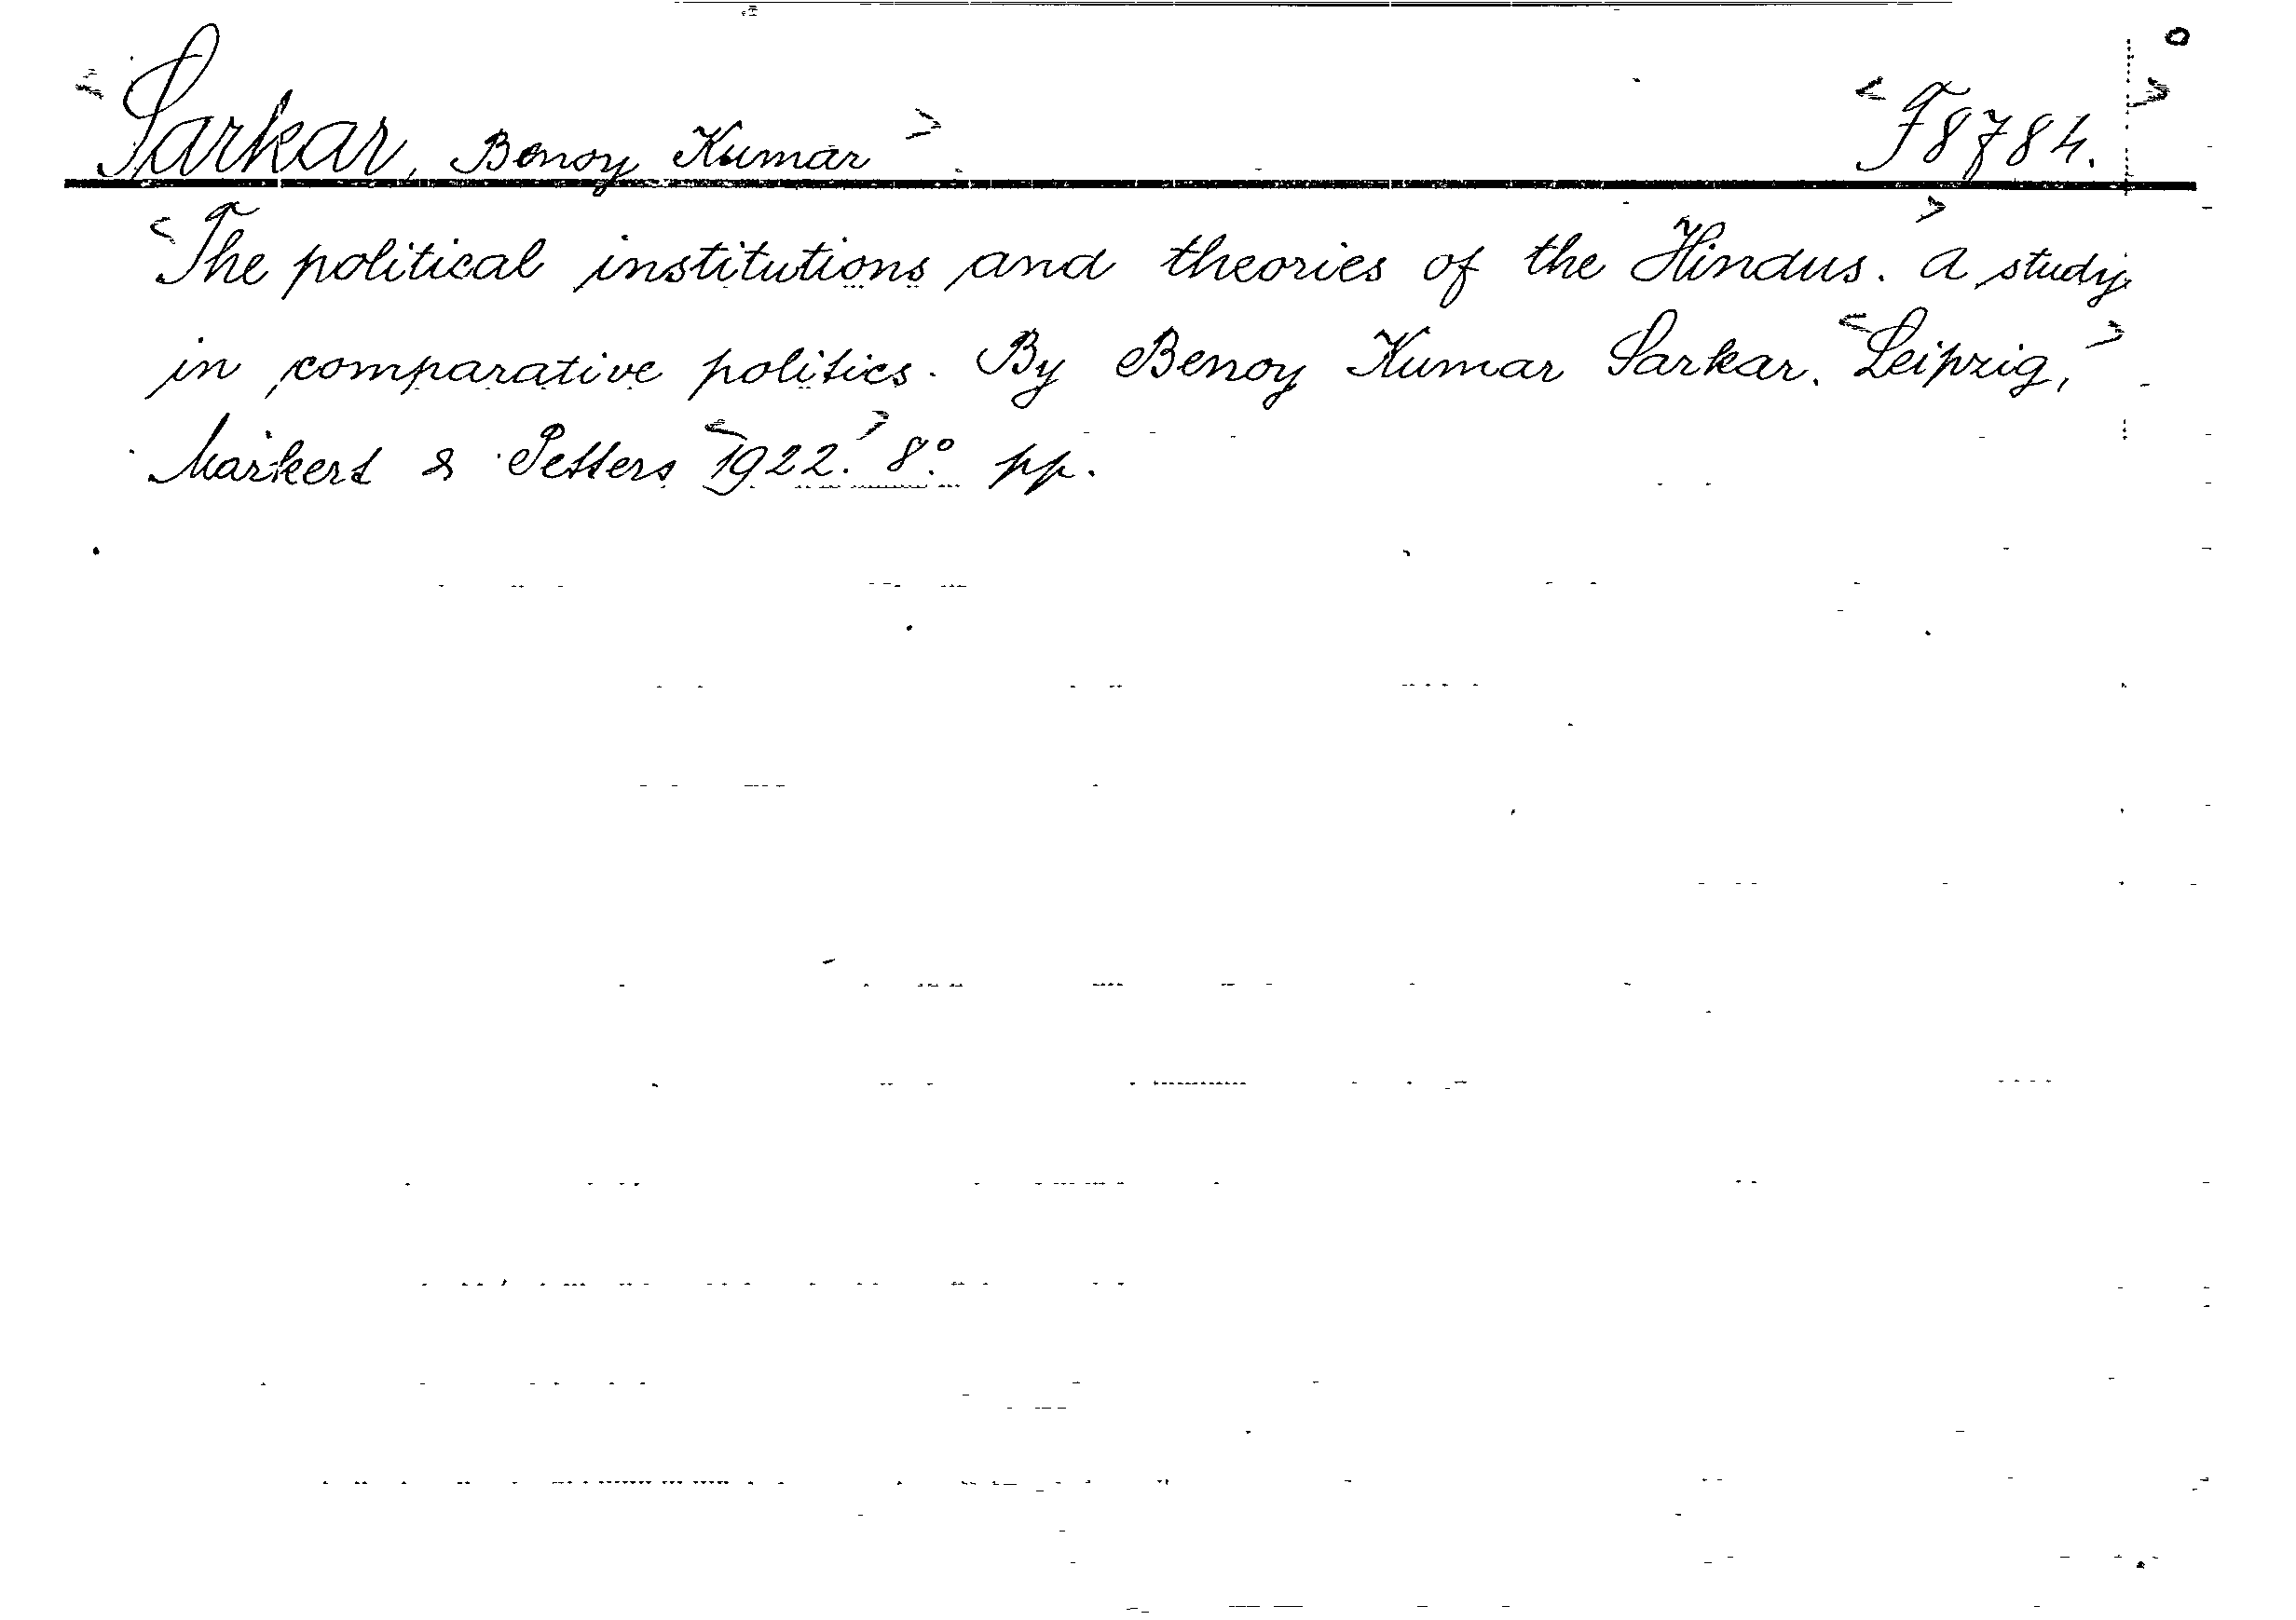 <Sarkar, Benoy Kumar> <F8784.>
<The political institutions and theories of the Hindus.> A study
in comparative politics. By Benoy Kumar Sarkar. <Leipzig,>
Markert & Petters <1922.> 8° pp.